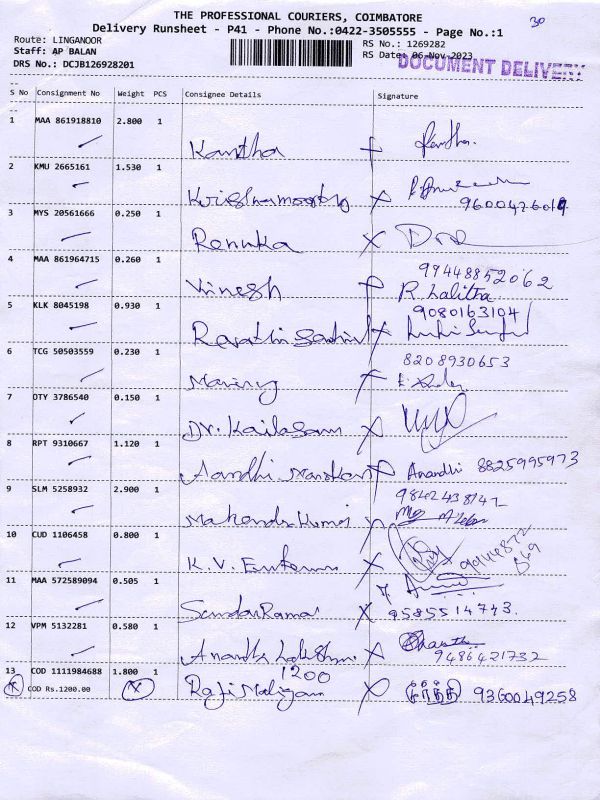 30
THE PROFESSIONAL COURIERS, COIMBATORE
Delivery Runsheet - P41 - Phone No.:0422-3505555 - Page No.:1
Route: LINGANOOR
RS No.: 1269282
Staff: AP BALAN
RS Date: 06-Nov-2023
DRS No.: DCJB126928201
DOCUMENT DELIVERY
S No Consignment No Weight PCS Consignee Details Signature
1 MAA 861918810 2.800 1
Kantha
2 KMU 2665161 1.530 1
Krishnamoorthy
9600426019
3 MYS 20561666 0.250 1
Renuka
4 MAA 861964715 0.260 1
99448852062
Vinesh R. Lalitha
5 KLK 8045198 0.930 1
9080163104
Revathi
6 TCG 50503559 0.230 1
8208930653
7 DTY 3786540 0.150 1
Dr. Kailasam
8 RPT 9310667 1.120 1
Anandhi 8825995973
9 SLM 5258932 2.900 1
Mahendrakumar
10 CUD 1106458 0.800 1
K.V.
11 MAA 572589094 0.505 1
SundarRaman 9585514743.
12 VPM 5132281 0.580 1
9486421732
13 COD 1111984688 1.800 1
1200
K COD Rs.1200.00
9360049258